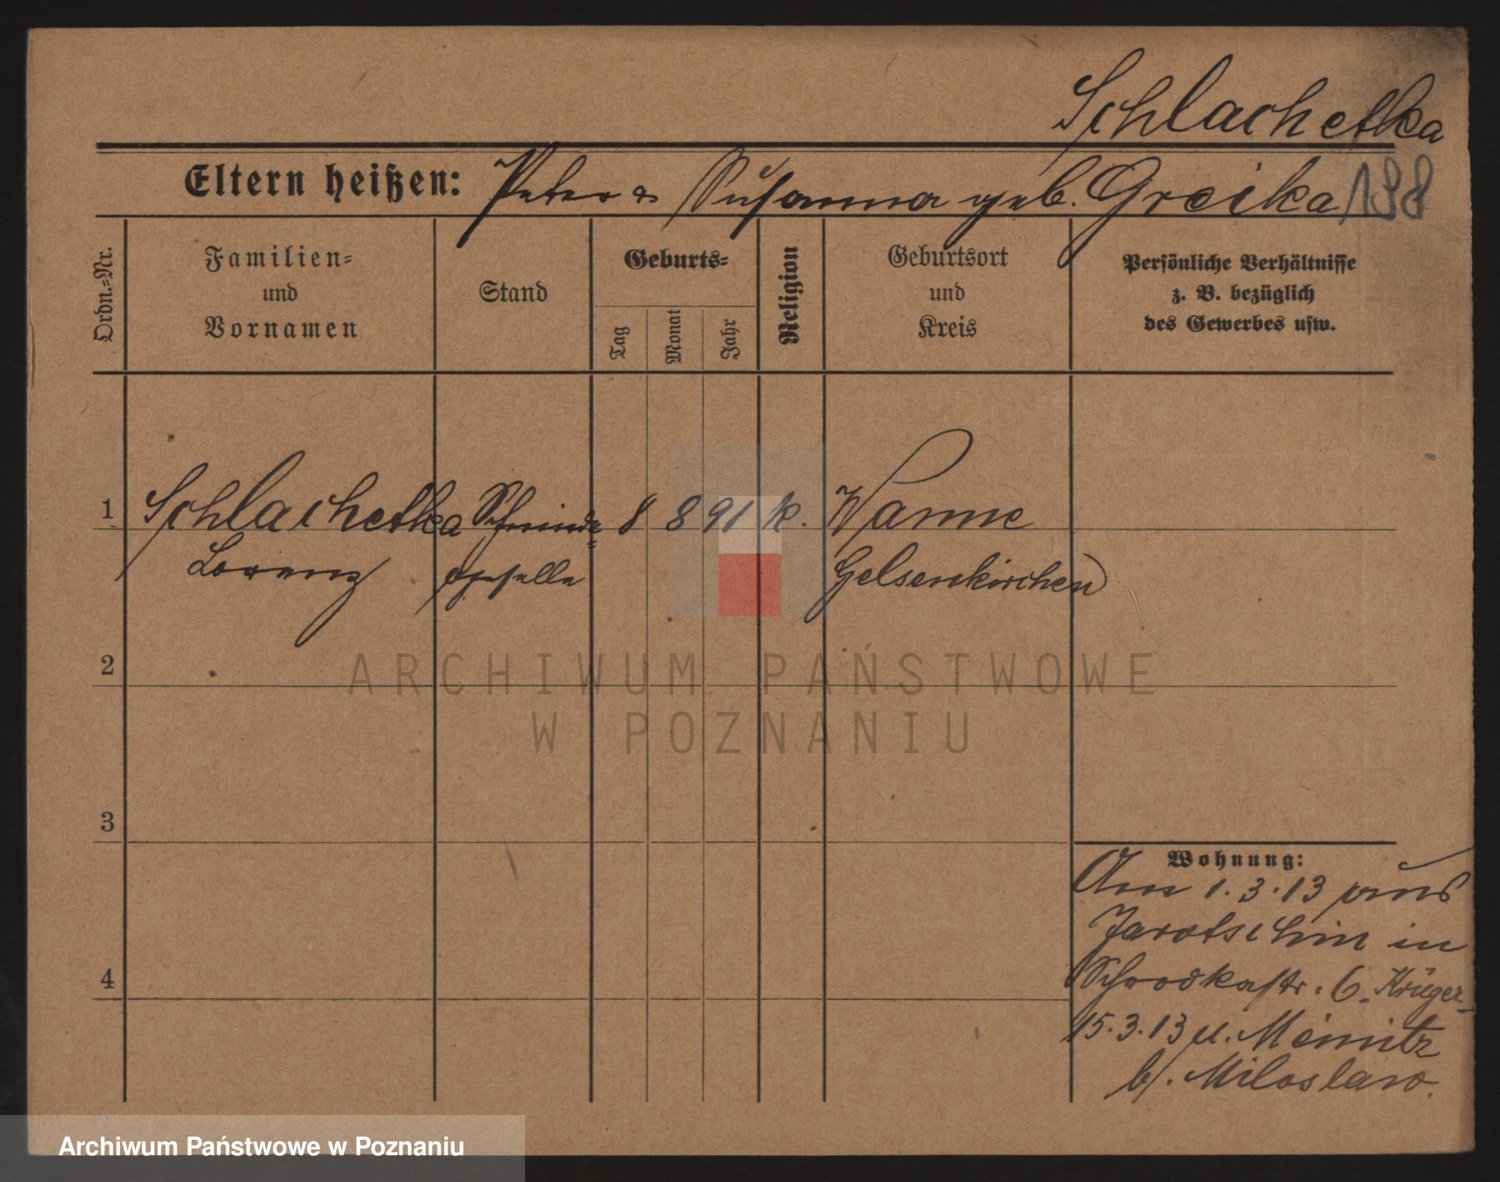 Schlachetka
Eltern heißen: Peter & Susanna geb. Greika 198
Ordn.-Nr.
Familien- und Vornamen
Stand
Geburts-
Tag
Monat
Jahr
Religion
Geburtsort und Kreis
Persönliche Verhältnisse z. B. bezüglich des Gewerbes usw.
1 Schlachetka 8 8 91 k. Wanne
Lorenz geselle Gelsenkirchen
2
3
4
Wohnung:
Am 1.3.13 aus
Jarotschin in
Schrodkastr. 6. Krüger
15.3.13 n.
b/. Miloslaw.
ARCHIWUM PAŃSTWOWE
W POZNANIU
Archiwum Państwowe w Poznaniu